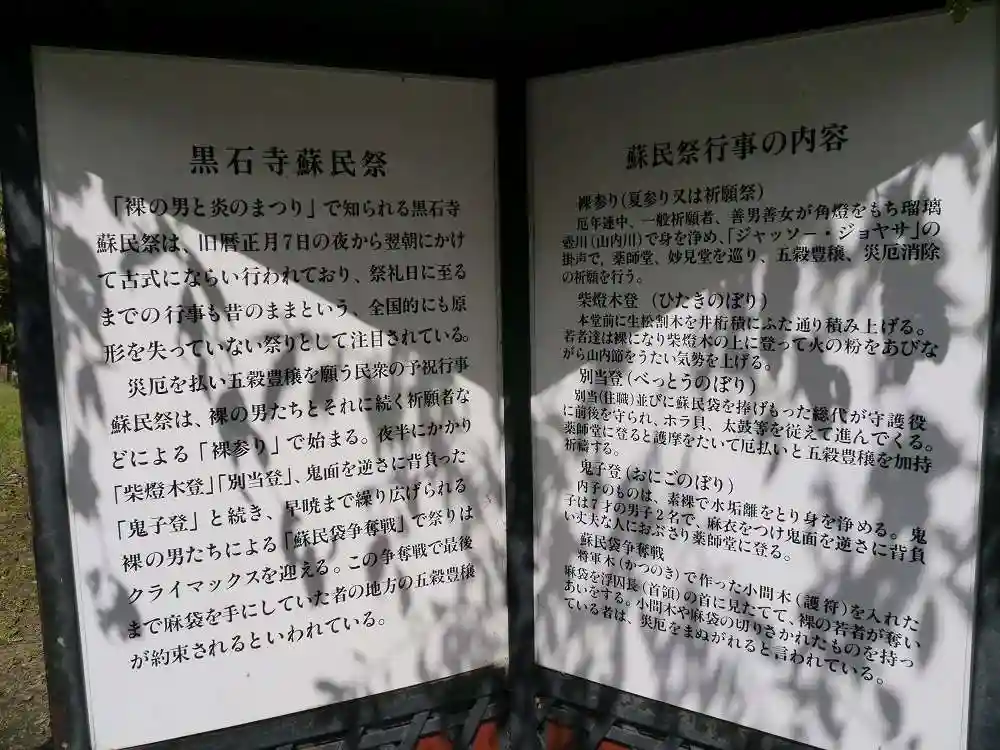 黒石寺蘇民祭
「裸の男と炎のまつり」で知られる黒石寺
蘇民祭は、旧暦正月7日の夜から翌朝にかけ
て古式にならい行われており、祭礼日に至る
までの行事も昔のままという、全国的にも原
形を失っていない祭りとして注目されている。
災厄を払い五穀豊穣を願う民衆の予祝行事
蘇民祭は、裸の男たちとそれに続く祈願者な
どによる「裸参り」で始まる。夜半にかかり
「柴燈木登」「別当登」、鬼面を逆さに背負った
「鬼子登」と続き、早暁まで繰り広げられる
裸の男たちによる「蘇民袋争奪戦」で祭りは
クライマックスを迎える。この争奪戦で最後
まで麻袋を手にしていた者の地方の五穀豊穣
が約束されるといわれている。
蘇民祭行事の内容
裸参り(夏参り又は祈願祭)
厄年連中、一般祈願者、善男善女が角燈をもち瑠璃
壺川(山内川)で身を浄め、「ジャッソー・ジョヤサ」の
掛声で、薬師堂、妙見堂を巡り、五穀豊穣、災厄消除
の祈願を行う。
柴燈木登 (ひたきのぼり)
本堂前に生松割木を井桁積にふた通り積み上げる。
若者達は裸になり柴燈木の上に登って火の粉をあびな
がら山内節をうたい気勢を上げる。
別当登(べっとうのぼり)
別当(住職)並びに蘇民袋を捧げもった総代が守護役
に前後を守られ、ホラ貝、太鼓等を従えて進んでくる。
薬師堂に登ると護摩をたいて厄払いと五穀豊穣を加持
祈祷する。
鬼子登(おにごのぼり)
内子のものは、素裸で水垢離をとり身を浄める。鬼
子は7才の男子2名で、麻衣をつけ鬼面を逆さに背負
い丈夫な人におぶさり薬師堂に登る。
蘇民袋争奪戦
将軍木(かつのき)で作った小間木(護符)を入れた
麻袋を浮囚長(首領)の首に見たてて、裸の若者が奪い
あいをする。小間木や麻袋の切りさかれたものを持っ
ている者は、災厄をまぬがれると言われている。